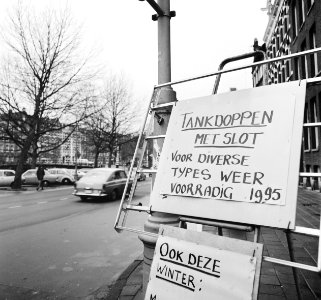 TANKDOPPEN
MET SLOT
VOOR DIVERSE
TYPES WEER
VOORRADIG 19.95
OOK DEZE
WINTER: